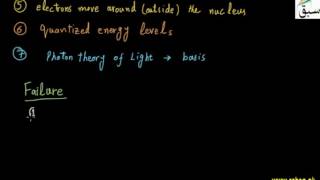 ⑤ electrons move around (outside) the nucleus
⑥ quantized energy levels
⑦ Photon theory of Light → basis
Failure
سبق